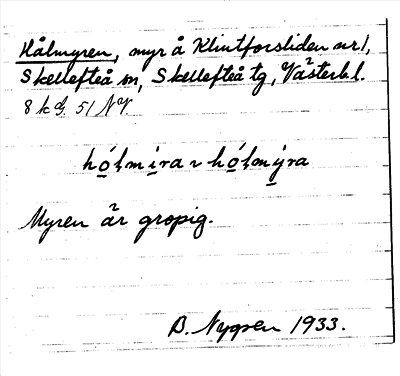 Hålmyren, myr å Klintforsliden nr 1,
Skellefteå sn, Skellefteå tg, Västerb. l.
8 k d. 51 NV.
hó̲lmi̲ra ~ hó̲lmý̲ra
Myren är gropig.
B. Nygren 1933.